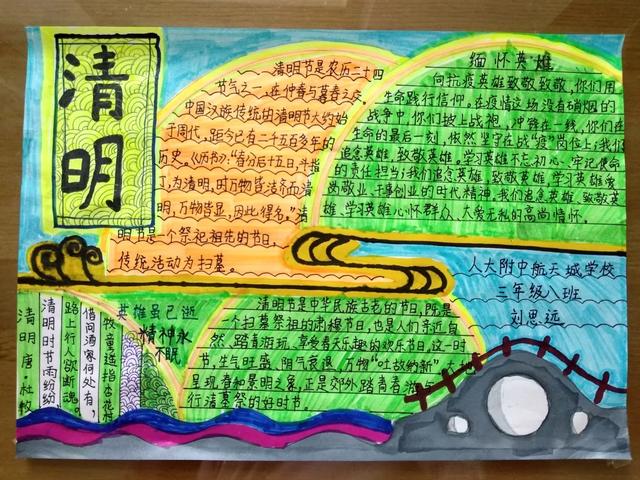 清明
清明节是农历二十四
节气之一,在仲春与暮春之交,
中国汉族传统的清明节大约始
于周代,距今已有二千五百多年的
历史。《历书》:“春分后十五日,斗指
丁,为清明,时万物皆洁齐而清
明,万物皆显,因此得名。”清
明节是一个祭祀祖先的节日,
传统活动为扫墓。
缅怀英雄
向抗疫英雄致敬致敬,你们用
生命践行信仰。在疫情这场没有硝烟的
战争中,你们披上战袍,冲锋在一线,你们在
生命的最后一刻,依然坚守在战“疫”岗位上;我们
追忆英雄,致敬英雄。学习英雄不忘初心、牢记使命
的责任担当;我们追忆英雄、致敬英雄,学习英雄爱
岗敬业、干事创业的时代精神。我们追忆英雄、致敬英
雄、学习英雄心怀群众、大爱无私的高尚情怀。
人大附中航天城学校
三年级八班
刘思远
清明 唐·杜牧
清明时节雨纷纷
路上行人欲断魂。
借问酒家何处有,
牧童遥指杏花村
英雄虽已逝
精神永
不眠
清明节是中华民族古老的节日,既是
一个扫墓祭祖的肃穆节日,也是人们亲近自
然、踏青游玩、享受春天乐趣的欢乐节日,这一时
节,生气旺盛,阴气衰退,万物“吐故纳新”,大地
呈现春和景明之象,正是郊外踏青春游与
行清墓祭的好时节。